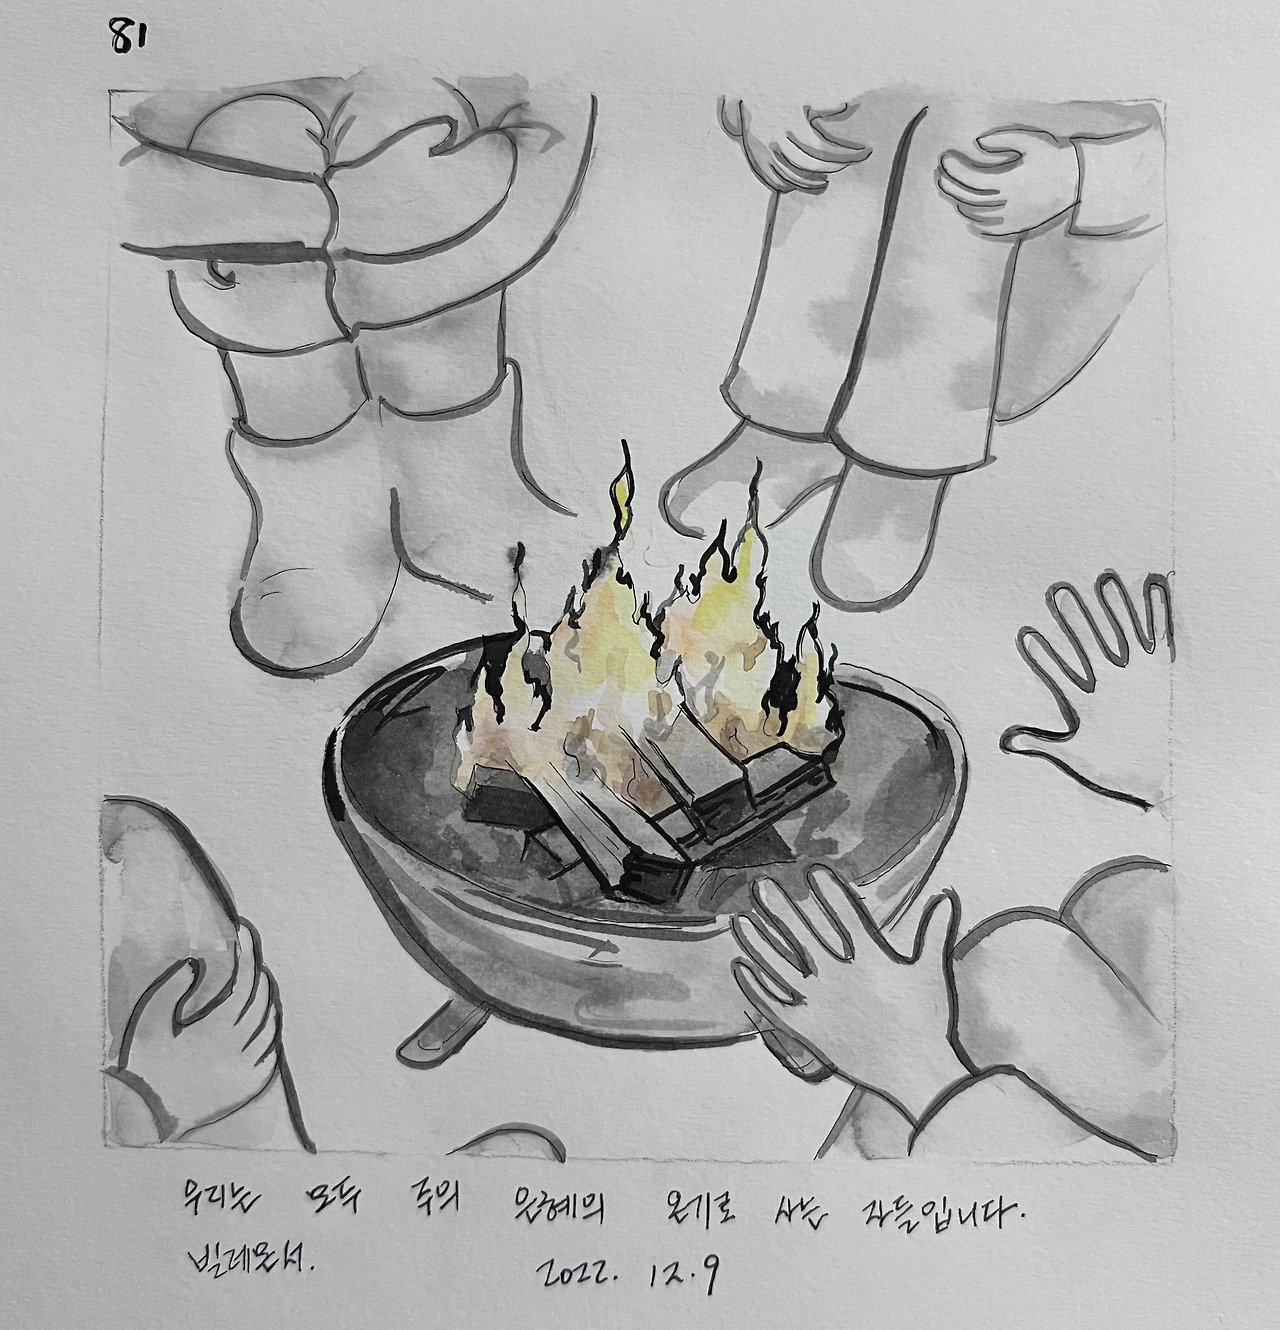 81
우리는 모두 주의 은혜의 온기로 사는 자들입니다.
빌레몬서. 2022. 12. 9